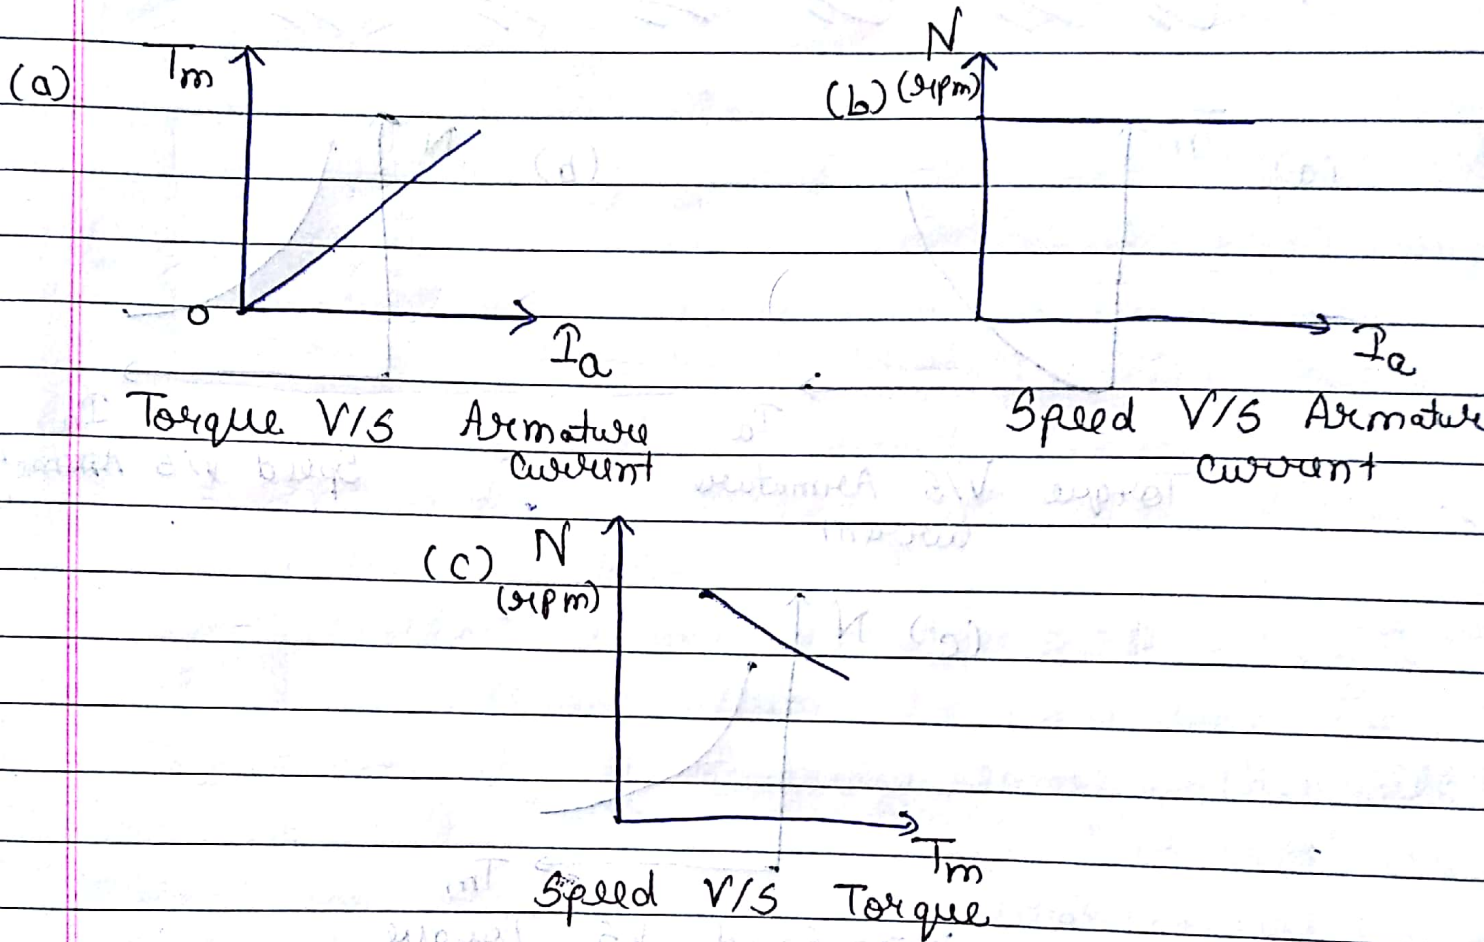 (a) Tm
N
(b) (rpm)
O
Ia
Ia
Torque V/S Armature
current
Speed V/S Armature
current
(c) N
(rpm)
Tm
Speed V/S Torque